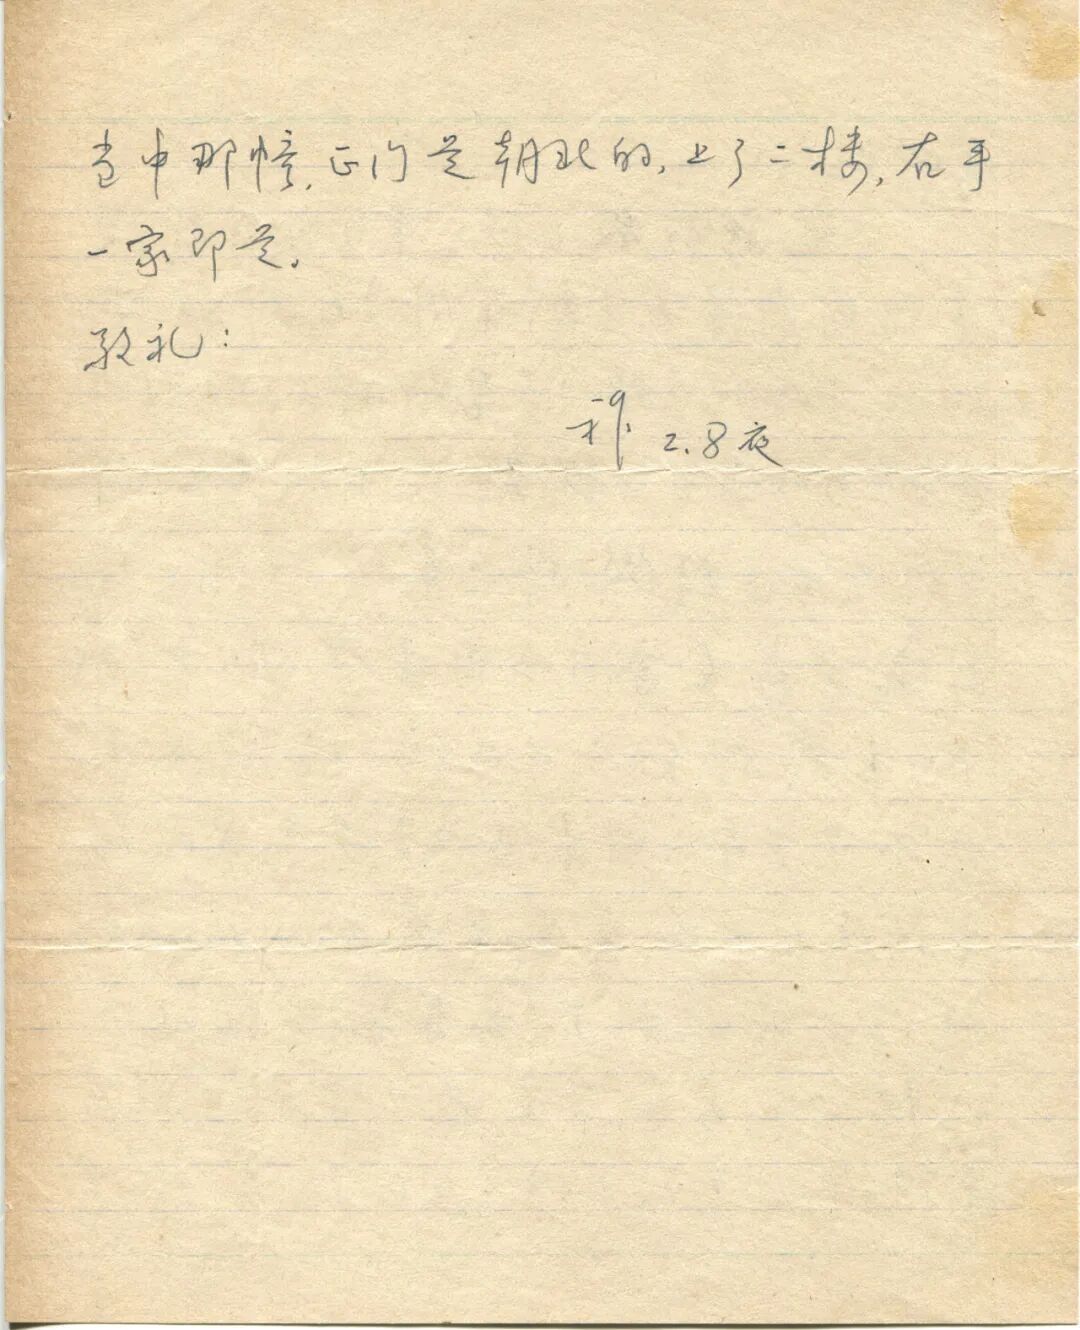 当中那幢,正门是朝北的,上了二楼,右手
一家即是。
敬礼:
2.8夜